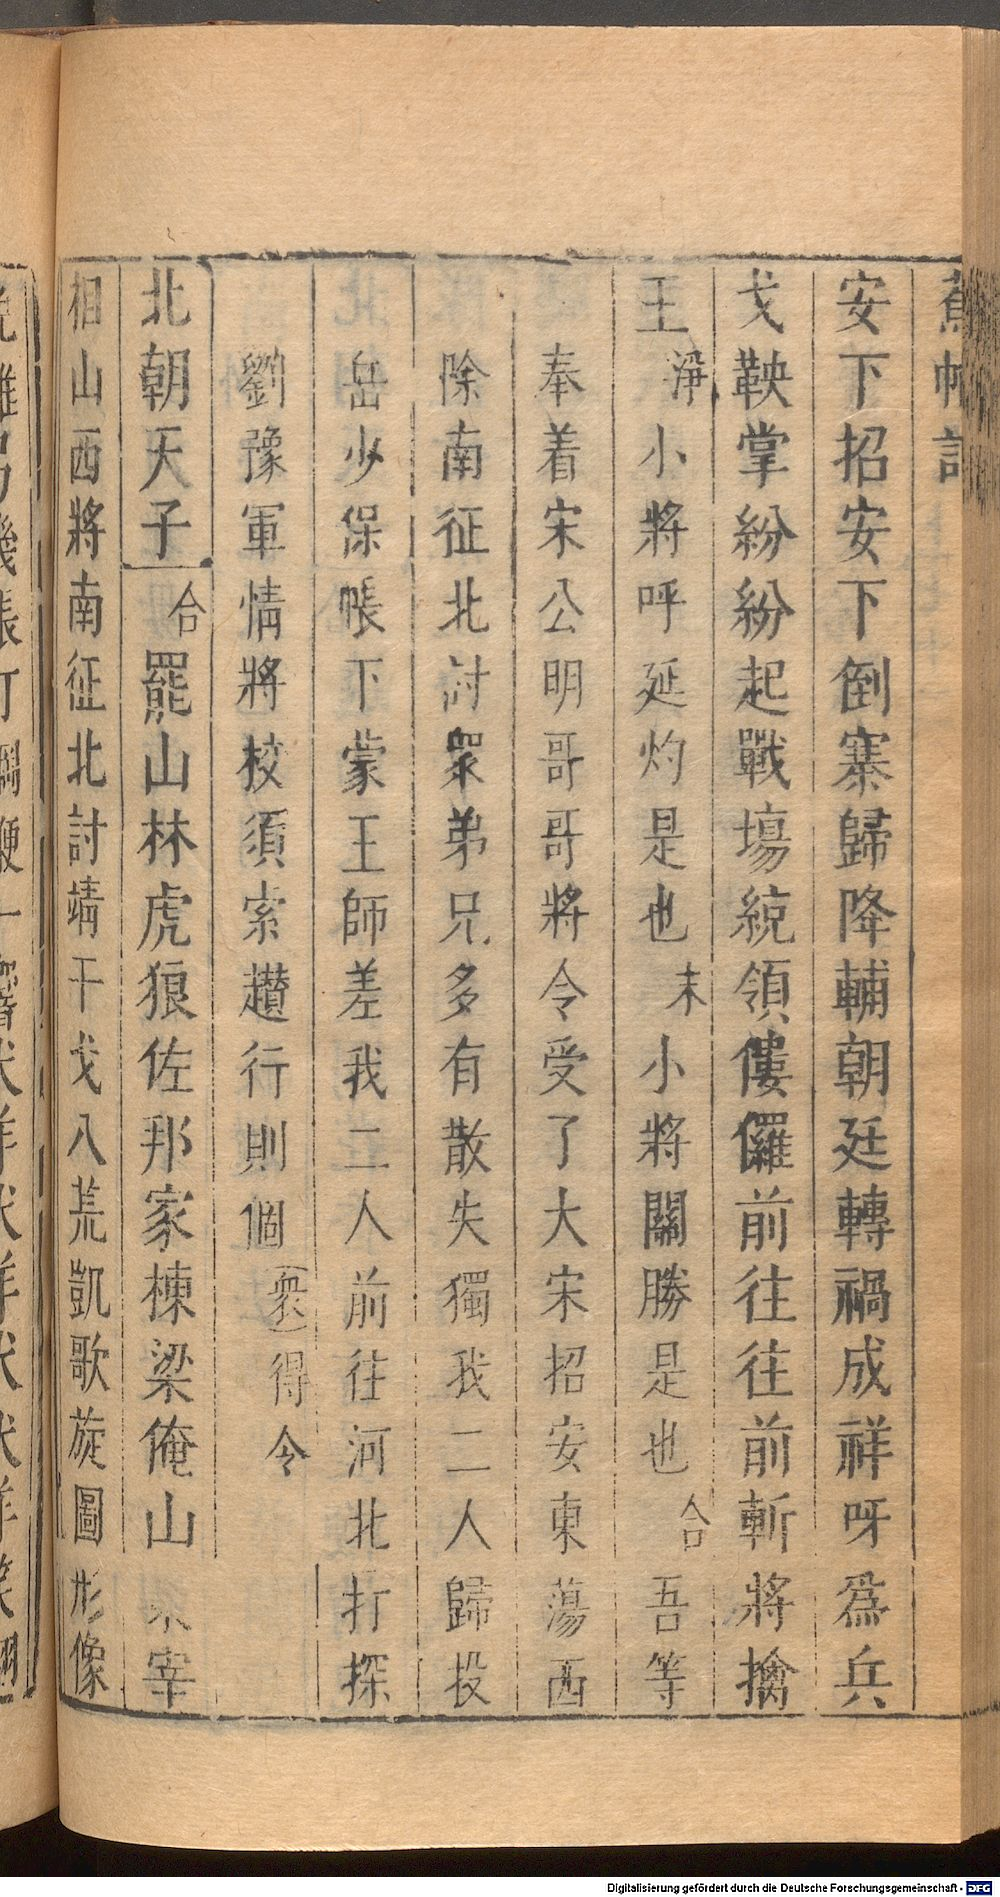 蕉帕記
安下招安下倒寨歸降輔朝廷轉禍成祥呀爲兵
戈鞅掌紛紛起戰塲統領僂儸前往往前斬將擒
王 淨小將呼延灼是也末小將關勝是也合吾等
奉着宋公明哥哥將令受了大宋招安東蕩西
除南征北討衆弟兄多有散失獨我二人歸投
岳少保帳下蒙王師差我二人前往河北打探
劉豫軍情將校須索趲行則個(衆)得令
北朝天子 合罷山林虎狼佐邦家棟梁俺山宰
相山西將南征北討靖干戈八荒凱歌旋圖形像
Digitalisierung gefördert durch die Deutsche Forschungsgemeinschaft - DFG